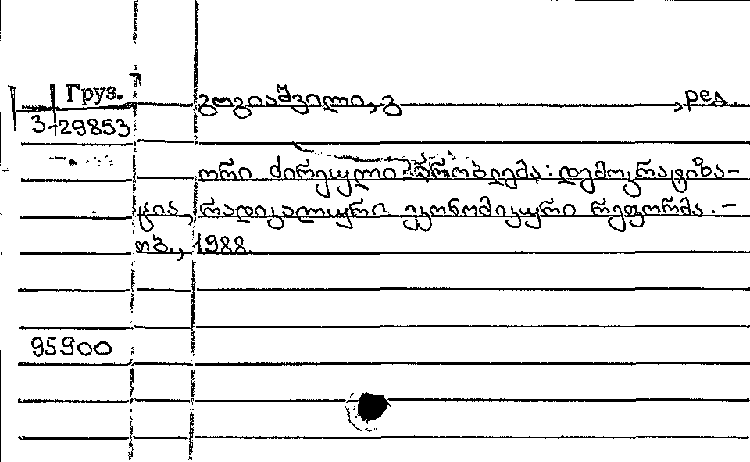 Груз.
გოგიაშვილი, გ , ред.
3-29853
ორი ძირეული პრობლემა: დემოკრატიზა-
ცია, რადიკალური ეკონომიკური რეფორმა. -
თბ., 1988.
95900